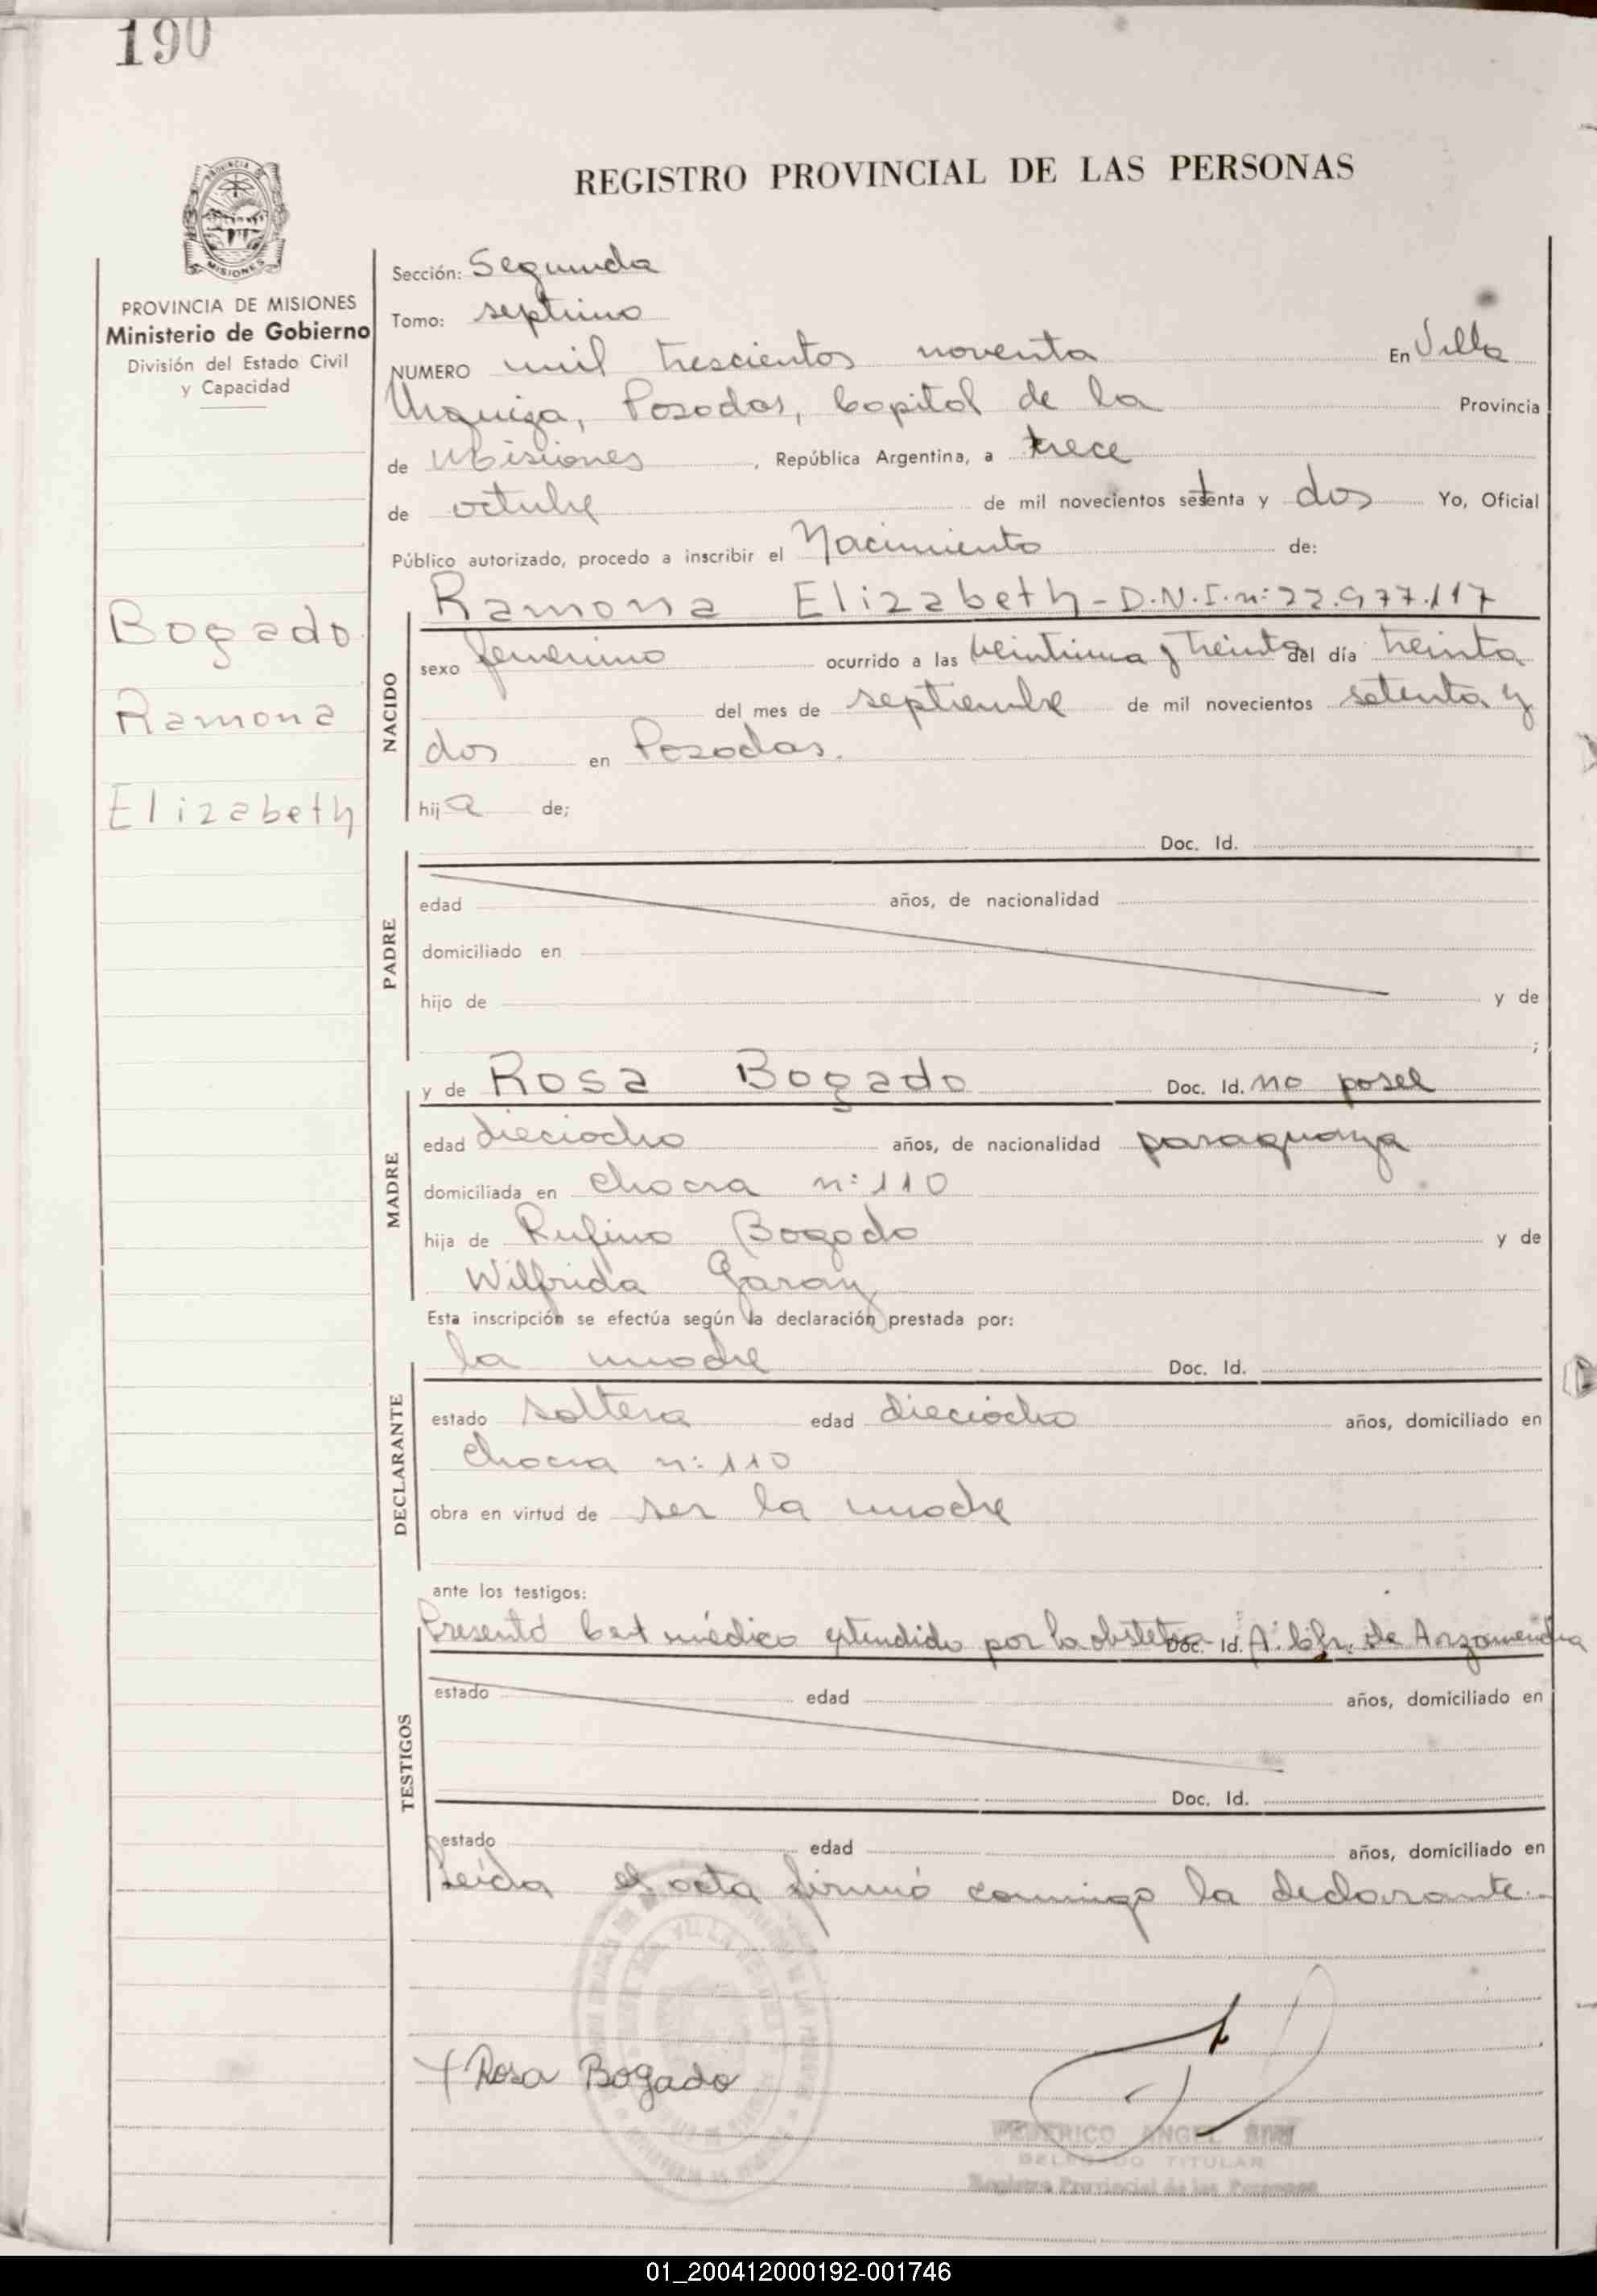 190
REGISTRO PROVINCIAL DE LAS PERSONAS
PROVINCIA
MISIONES
PROVINCIA DE MISIONES
Ministerio de Gobierno
División del Estado Civil
y Capacidad
Bogado
Ramona
Elizabeth
Sección: Segunda
Tomo: septimo
NUMERO mil trescientos noventa En Villa
Urquiza, Posadas, Capital de la Provincia
de Misiones, República Argentina, a trece
de octubre de mil novecientos setenta y dos Yo, Oficial
Público autorizado, procedo a inscribir el Nacimiento de:
NACIDO
Ramona Elizabeth - D.N.I. n: 22.977.117
sexo femenino ocurrido a las veintiuna y treinta del día treinta
del mes de septiembre de mil novecientos setenta y
dos en Posadas.
hija de;
PADRE
Doc. Id.
edad años, de nacionalidad
domiciliado en
hijo de y de
;
MADRE
y de Rosa Bogado Doc. Id. no posee
edad dieciocho años, de nacionalidad paraguaya
domiciliada en chacra n: 110
hija de Rufino Bogado y de
Wilfrida Garay
Esta inscripción se efectúa según la declaración prestada por:
DECLARANTE
la madre Doc. Id.
estado soltera edad dieciocho años, domiciliado en
chacra n: 110
obra en virtud de ser la madre
ante los testigos:
TESTIGOS
Presentó Cert médico extendido por la obstetra Doc. Id. A. de Arzamendia
estado edad años, domiciliado en
Doc. Id.
estado edad años, domiciliado en
Leída el acta firmó conmigo la declarante.-
Rosa Bogado
FEDERICO ANGEL
DELEGADO TITULAR
Registro Provincial de las Personas
01_200412000192-001746